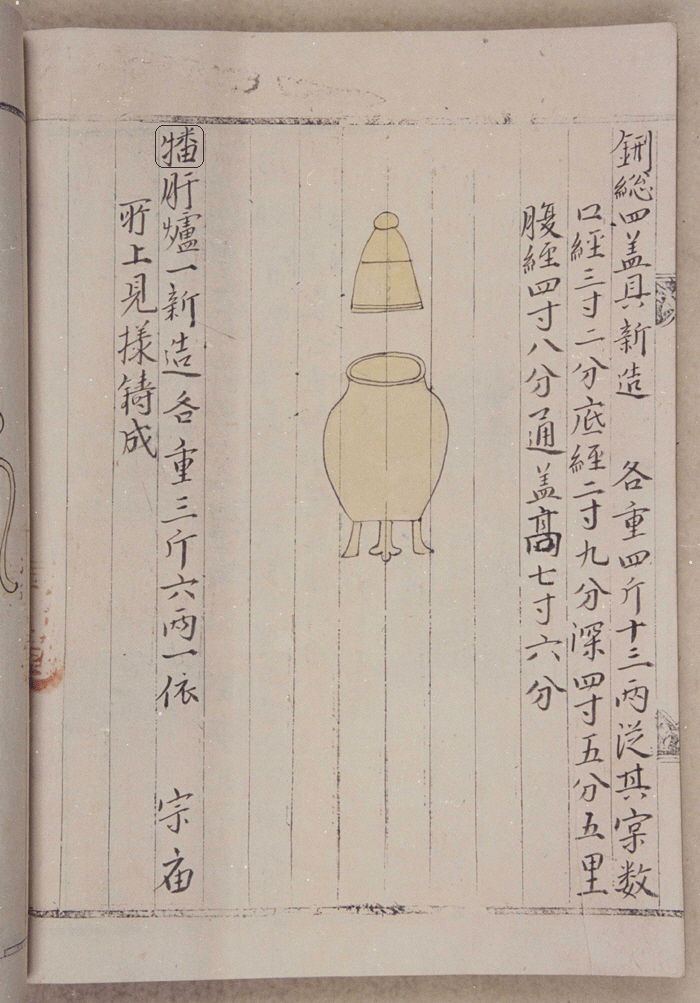 鉶総四盖具新造 各重四斤十三兩從其宲数
口經三寸二分底經二寸九分深四寸五分五里
腹經四寸八分通盖髙七寸六分
肝爐一新造各重三斤六兩一依 宗庙
所上見様鑄成